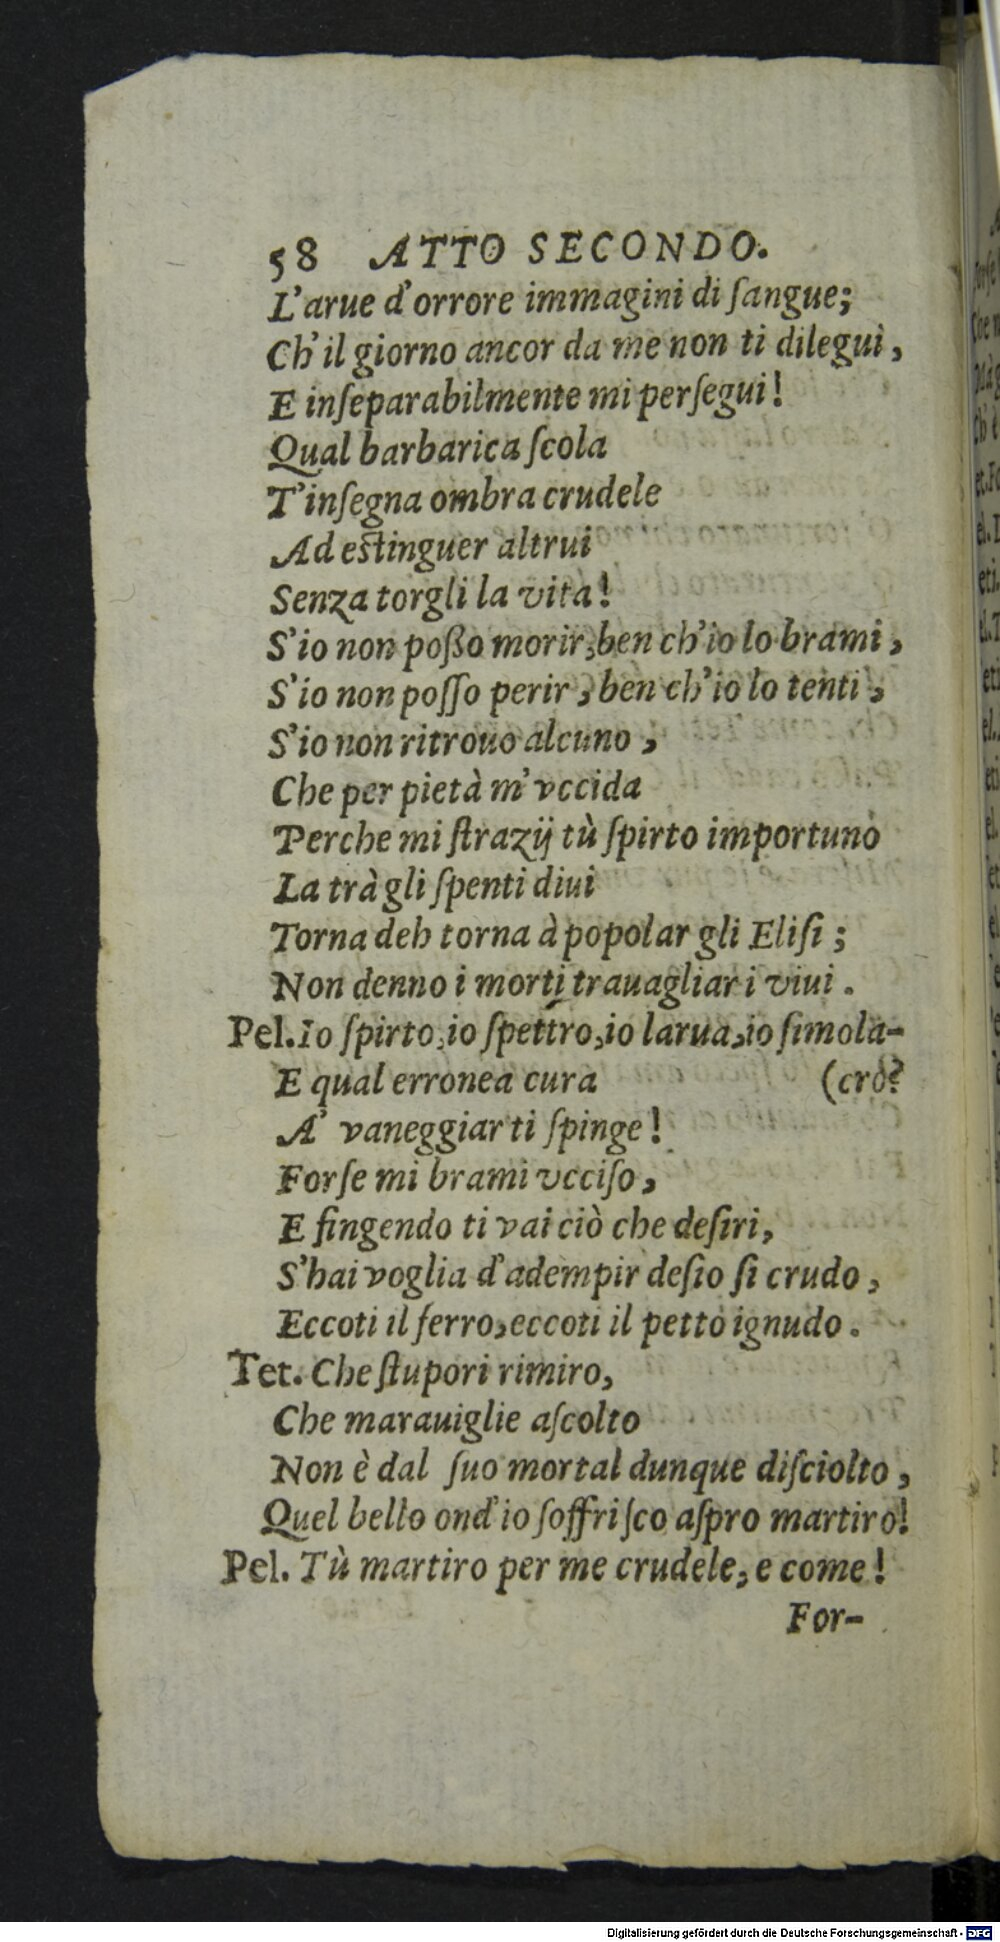 58 ATTO SECONDO.
L'arue d'orrore immagini di ſangue;
Ch'il giorno ancor da me non ti dilegui,
E inſeparabilmente mi perſegui!
Qual barbarica ſcola
T'inſegna ombra crudele
Ad eſtinguer altrui
Senza torgli la vita!
S'io non poßo morir, ben ch'io lo brami,
S'io non poſſo perir, ben ch'io lo tenti,
S'io non ritrouo alcuno,
Che per pietà m'vccida
Perche mi ſtrazij tù ſpirto importuno
La trà gli ſpenti diui
Torna deh torna à popolar gli Eliſi;
Non denno i morti trauagliar i viui.
Pel. Io ſpirto, io ſpettro, io larua, io ſimola-
E qual erronea cura (cro?
A' vaneggiar ti ſpinge!
Forſe mi brami vcciſo,
E fingendo ti vai ciò che deſiri,
S'hai voglia d'adempir deſio ſi crudo,
Eccoti il ferro, eccoti il petto ignudo.
Tet. Che ſtupori rimiro,
Che marauiglie aſcolto
Non è dal ſuo mortal dunque diſciolto,
Quel bello ond'io ſoffriſco aſpro martiro!
Pel. Tù martiro per me crudele, e come!
For-
Digitalisierung gefördert durch die Deutsche Forschungsgemeinschaft - DFG